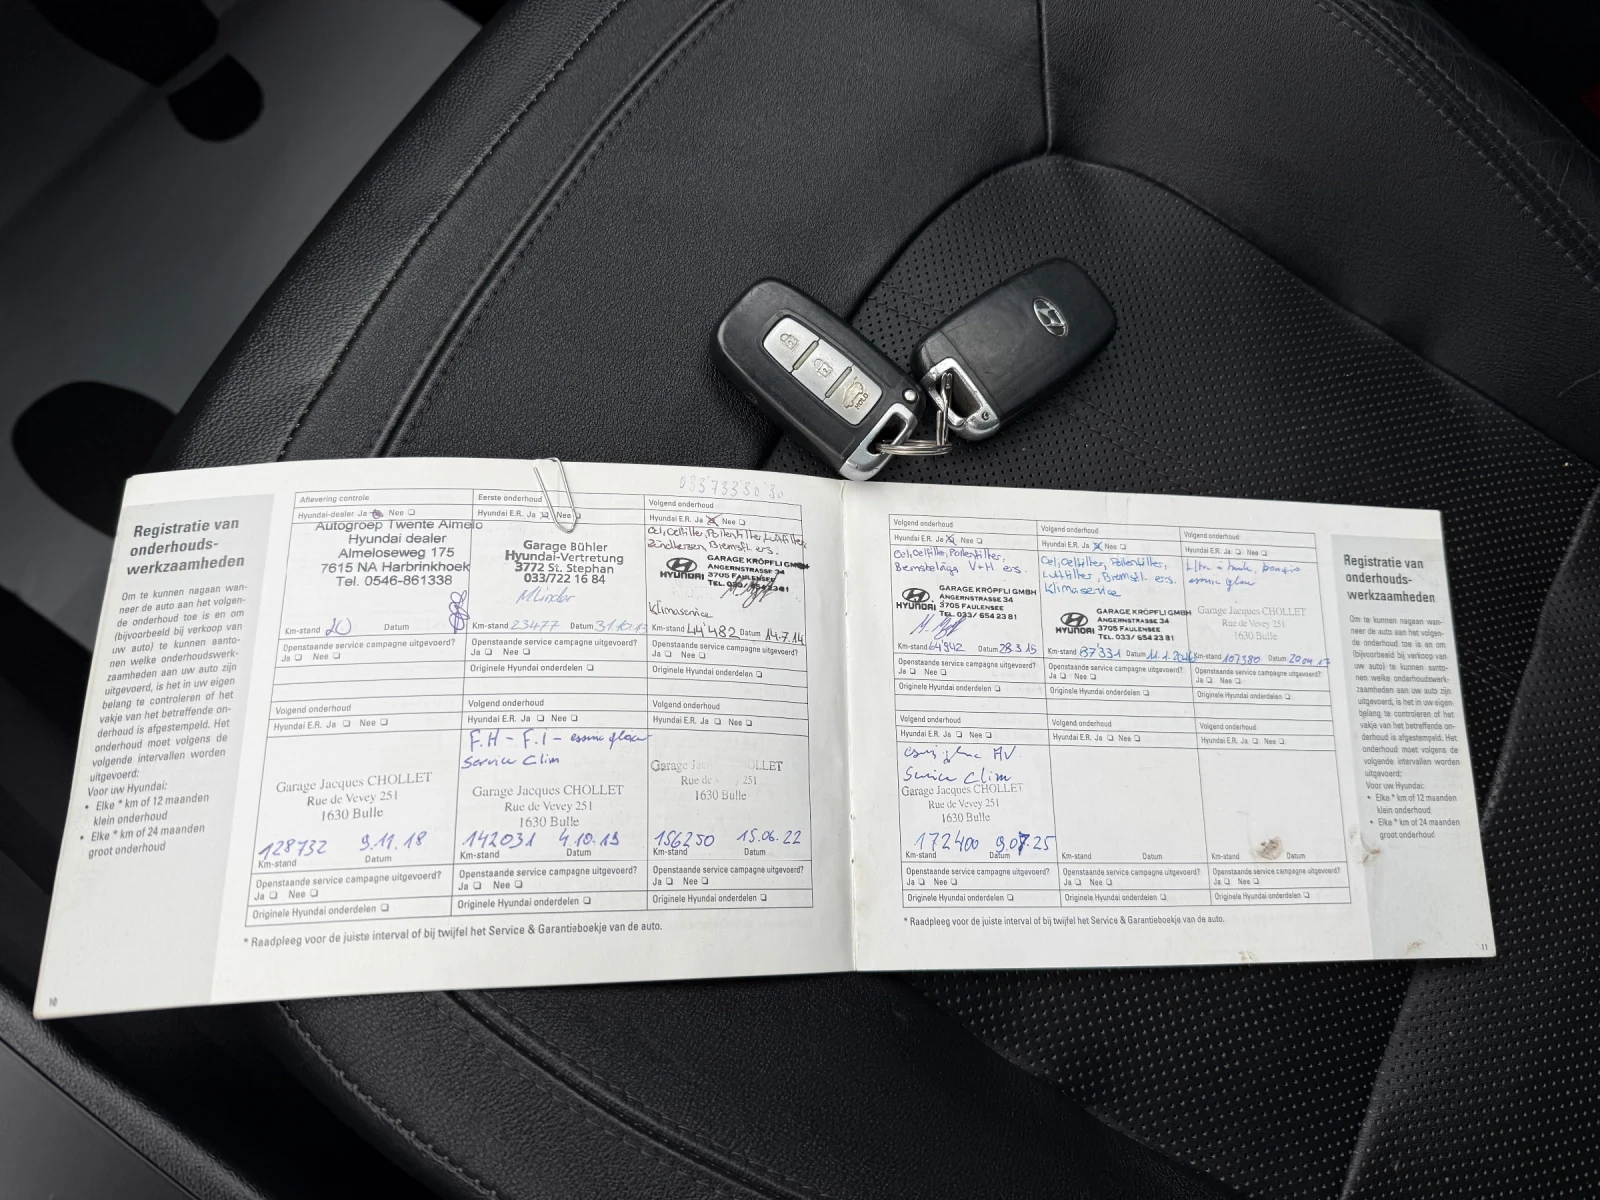 Registratie van
onderhouds-
werkzaamheden
Om te kunnen nagaan wan-
neer de auto aan het volgen-
de onderhoud toe is en om
(bijvoorbeeld bij verkoop van
uw auto) te kunnen aanto-
nen welke onderhoudswerk-
zaamheden aan uw auto zijn
uitgevoerd, is het in uw eigen
belang te controleren of het
vakje van het betreffende on-
derhoud is afgestempeld. Het
onderhoud moet volgens de
volgende intervallen worden
uitgevoerd:
Voor uw Hyundai:
• Elke * km of 12 maanden
klein onderhoud
• Elke * km of 24 maanden
groot onderhoud
10
Aflevering controle
Hyundai-dealer Ja Nee
Autogroep Twente Almelo
Hyundai dealer
Almeloseweg 175
7615 NA Harbrinkhoek
Tel. 0546-861338
Km-stand 20 Datum
Openstaande service campagne uitgevoerd?
Ja Nee
Eerste onderhoud
Hyundai E.R. Ja Nee
Garage Bühler
Hyundai-Vertretung
3772 St. Stephan
033/722 16 84
Km-stand 23477 Datum
Openstaande service campagne uitgevoerd?
Ja Nee
Originele Hyundai onderdelen
Volgend onderhoud
Hyundai E.R. Ja Nee
Oel, Oelfilter, Pollenfilter, Luftfilter,
Zündkerzen, Bremsfl. ers.
HYUNDAI
GARAGE KRÖPFLI GMBH
ANGERNSTRASSE 34
3705 FAULENSEE
TEL. 033/ 654 23 81
Klimaservice
Km-stand 44'482 Datum 14.7.14
Openstaande service campagne uitgevoerd?
Ja Nee
Originele Hyundai onderdelen
Volgend onderhoud
Hyundai E.R. Ja Nee
Garage Jacques CHOLLET
Rue de Vevey 251
1630 Bulle
128732 9.11.18
Km-stand Datum
Openstaande service campagne uitgevoerd?
Ja Nee
Originele Hyundai onderdelen
Volgend onderhoud
Hyundai E.R. Ja Nee
F.H - F.I - essuie glace
Service Clim
Garage Jacques CHOLLET
Rue de Vevey 251
1630 Bulle
142031 4.10.19
Km-stand Datum
Openstaande service campagne uitgevoerd?
Ja Nee
Originele Hyundai onderdelen
Volgend onderhoud
Hyundai E.R. Ja Nee
Garage LLET
Rue de 251
1630 Bulle
156250 15.06.22
Km-stand Datum
Openstaande service campagne uitgevoerd?
Ja Nee
Originele Hyundai onderdelen
* Raadpleeg voor de juiste interval of bij twijfel het Service & Garantieboekje van de auto.
Volgend onderhoud
Hyundai E.R. Ja Nee
Oel, Oelfilter, Pollenfilter,
Bremsbeläge V+H ers.
HYUNDAI
GARAGE KRÖPFLI GMBH
ANGERNSTRASSE 34
3705 FAULENSEE
TEL. 033/ 654 23 81
Km-stand 64'942 Datum 28.3.15
Openstaande service campagne uitgevoerd?
Ja Nee
Originele Hyundai onderdelen
Volgend onderhoud
Hyundai E.R. Ja Nee
Oel, Oelfilter, Pollenfilter,
Luftfilter, Bremsfl. ers.
Klimaservice
HYUNDAI
GARAGE KRÖPFLI GMBH
ANGERNSTRASSE 34
3705 FAULENSEE
TEL. 033/ 654 23 81
Km-stand 87'331 Datum 11.1.2016
Openstaande service campagne uitgevoerd?
Ja Nee
Originele Hyundai onderdelen
Volgend onderhoud
Hyundai E.R. Ja Nee
essuie glace
Garage Jacques CHOLLET
Rue de Vevey 251
1630 Bulle
Km-stand 107380 Datum 20 04 17
Openstaande service campagne uitgevoerd?
Ja Nee
Originele Hyundai onderdelen
Volgend onderhoud
Hyundai E.R. Ja Nee
essuie glace AV.
Service Clim
Garage Jacques CHOLLET
Rue de Vevey 251
1630 Bulle
172400 9.07.25
Km-stand Datum
Openstaande service campagne uitgevoerd?
Ja Nee
Originele Hyundai onderdelen
Volgend onderhoud
Hyundai E.R. Ja Nee
Km-stand Datum
Openstaande service campagne uitgevoerd?
Ja Nee
Originele Hyundai onderdelen
Volgend onderhoud
Hyundai E.R. Ja Nee
Km-stand Datum
Openstaande service campagne uitgevoerd?
Ja Nee
Originele Hyundai onderdelen
* Raadpleeg voor de juiste interval of bij twijfel het Service & Garantieboekje van de auto.
Registratie van
onderhouds-
werkzaamheden
Om te kunnen nagaan wan-
neer de auto aan het volgen-
de onderhoud toe is en om
(bijvoorbeeld bij verkoop van
uw auto) te kunnen aanto-
nen welke onderhoudswerk-
zaamheden aan uw auto zijn
uitgevoerd, is het in uw eigen
belang te controleren of het
vakje van het betreffende on-
derhoud is afgestempeld. Het
onderhoud moet volgens de
volgende intervallen worden
uitgevoerd:
Voor uw Hyundai:
• Elke * km of 12 maanden
klein onderhoud
• Elke * km of 24 maanden
groot onderhoud
11
HOLD